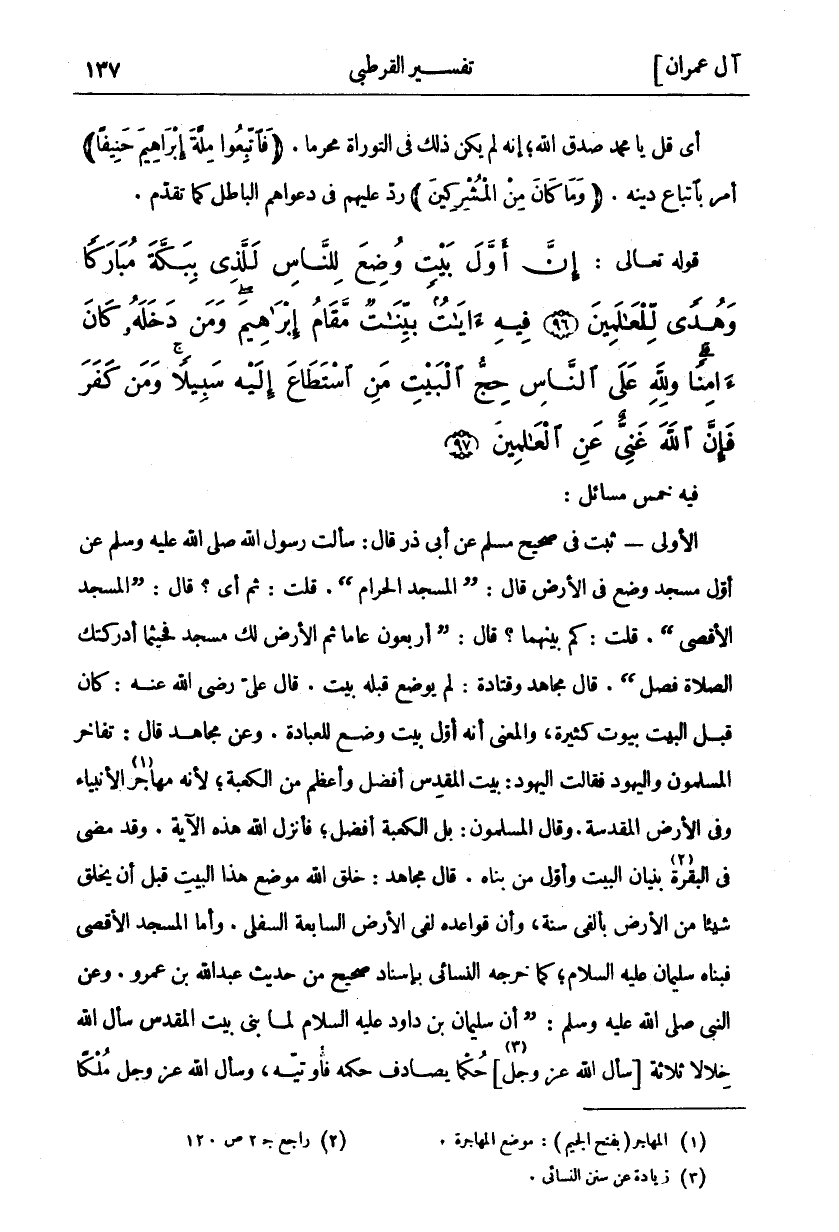 آل عمران ] تفسير القرطبى ١٣٧
أى قل يا محمد صدق الله؛ إنه لم يكن ذلك فى التوراة محرما . ﴿ فَٱتَّبِعُوا مِلَّةَ إِبْرَاهِيمَ حَنِيفًا ﴾
أمر بٱتباع دينه . ﴿ وَمَا كَانَ مِنَ الْمُشْرِكِينَ ﴾ ردّ عليهم فى دعواهم الباطل كما تقدّم .
قوله تعالى : إِنَّ أَوَّلَ بَيْتٍ وُضِعَ لِلنَّاسِ لَلَّذِى بِبَكَّةَ مُبَارَكًا
وَهُدًى لِّلْعَـٰلَمِينَ ﴿٩٦﴾ فِيهِ ءَايَـٰتٌ بَيِّنَـٰتٌ مَّقَامُ إِبْرَٰهِيمَ ۖ وَمَن دَخَلَهُۥ كَانَ
ءَامِنًا ۗ وَلِلَّهِ عَلَى ٱلنَّاسِ حِجُّ ٱلْبَيْتِ مَنِ ٱسْتَطَاعَ إِلَيْهِ سَبِيلًا ۚ وَمَن كَفَرَ
فَإِنَّ ٱللَّهَ غَنِىٌّ عَنِ ٱلْعَـٰلَمِينَ ﴿٩٧﴾
فيه خمس مسائل :
الأولى — ثبت فى صحيح مسلم عن أبى ذر قال: سألت رسول الله صلى الله عليه وسلم عن
أوّل مسجد وضع فى الأرض قال : ” المسجد الحرام “ . قلت : ثم أى ؟ قال : ”المسجد
الأقصى “ . قلت : كم بينهما ؟ قال : ” أربعون عاما ثم الأرض لك مسجد فحيثما أدركتك
الصلاة فصل “ . قال مجاهد وقتادة : لم يوضع قبله بيت . قال علىّ رضى الله عنه : كان
قبل البيت بيوت كثيرة، والمعنى أنه أوّل بيت وضع للعبادة . وعن مجاهد قال : تفاخر
المسلمون واليهود فقالت اليهود: بيت المقدِس أفضل وأعظم من الكعبة؛ لأنه مهاجَر(١) الأنبياء
وفى الأرض المقدسة. وقال المسلمون: بل الكعبة أفضل؛ فأنزل الله هذه الآية . وقد مضى
فى البقرة(٢) بنيان البيت وأوّل من بناه . قال مجاهد : خلق الله موضع هذا البيتِ قبل أن يخلق
شيئا من الأرض بألفى سنة، وأن قواعده لفى الأرض السابعة السفلى . وأما المسجد الأقصى
فبناه سليمان عليه السلام؛ كما خرجه النسائى بإسناد صحيح من حديث عبدالله بن عمرو . وعن
النبى صلى الله عليه وسلم : ” أن سليمان بن داود عليه السلام لما بنى بيت المقدس سأل الله
خِلالا ثلاثة [سأل الله عز وجل](٣) حُكْما يصادف حكمه فأُوتيَه، وسأل الله عز وجل مُلْكًا
(١) المهاجر (بفتح الجيم) : موضع المهاجرة . (٢) راجع ج ٢ ص ١٢٠
(٣) زيادة عن سنن النسائى .